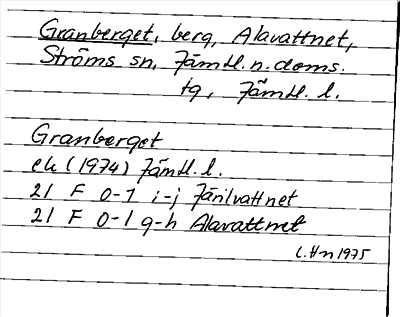 Granberget, berg, Alavattnet,
Ströms sn, Jämtl. n. doms.
tg, Jämtl. l.
Granberget
ek (1974) Jämtl. l.
21 F 0-1 i-j Järilvattnet
21 F 0-1 g-h Alavattnet
L.Hn 1975